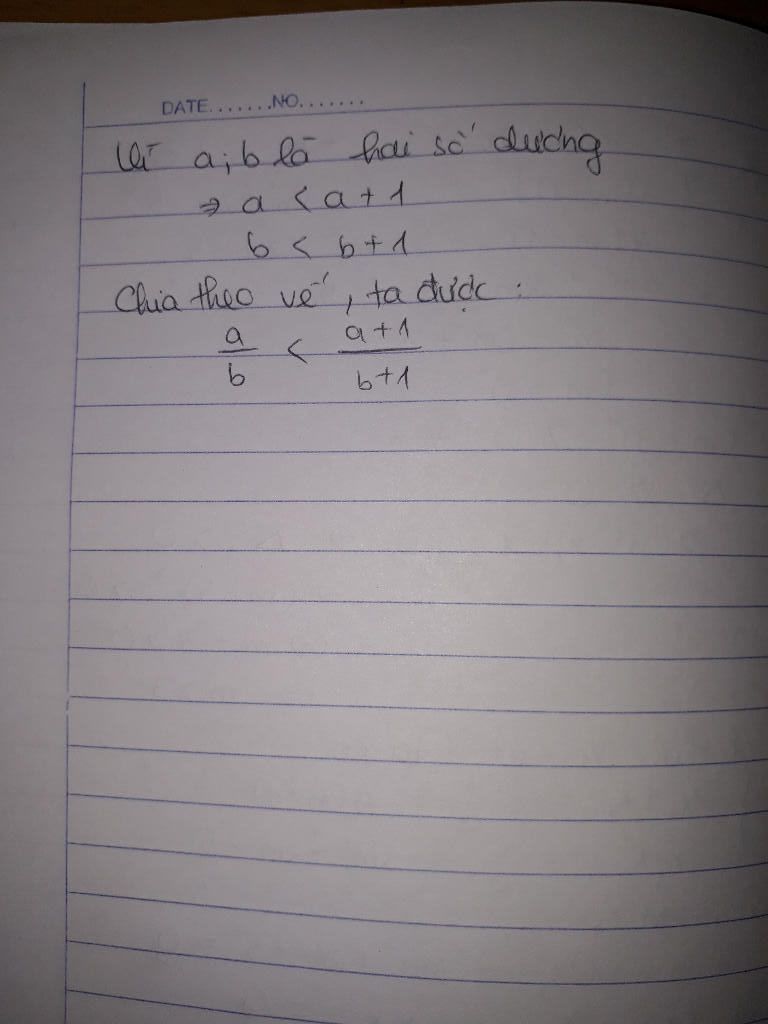 DATE.......NO.......
Vì a;b là hai số dương
⇒ a < a + 1
b < b + 1
Chia theo vế, ta được:
a/b < a+1/b+1